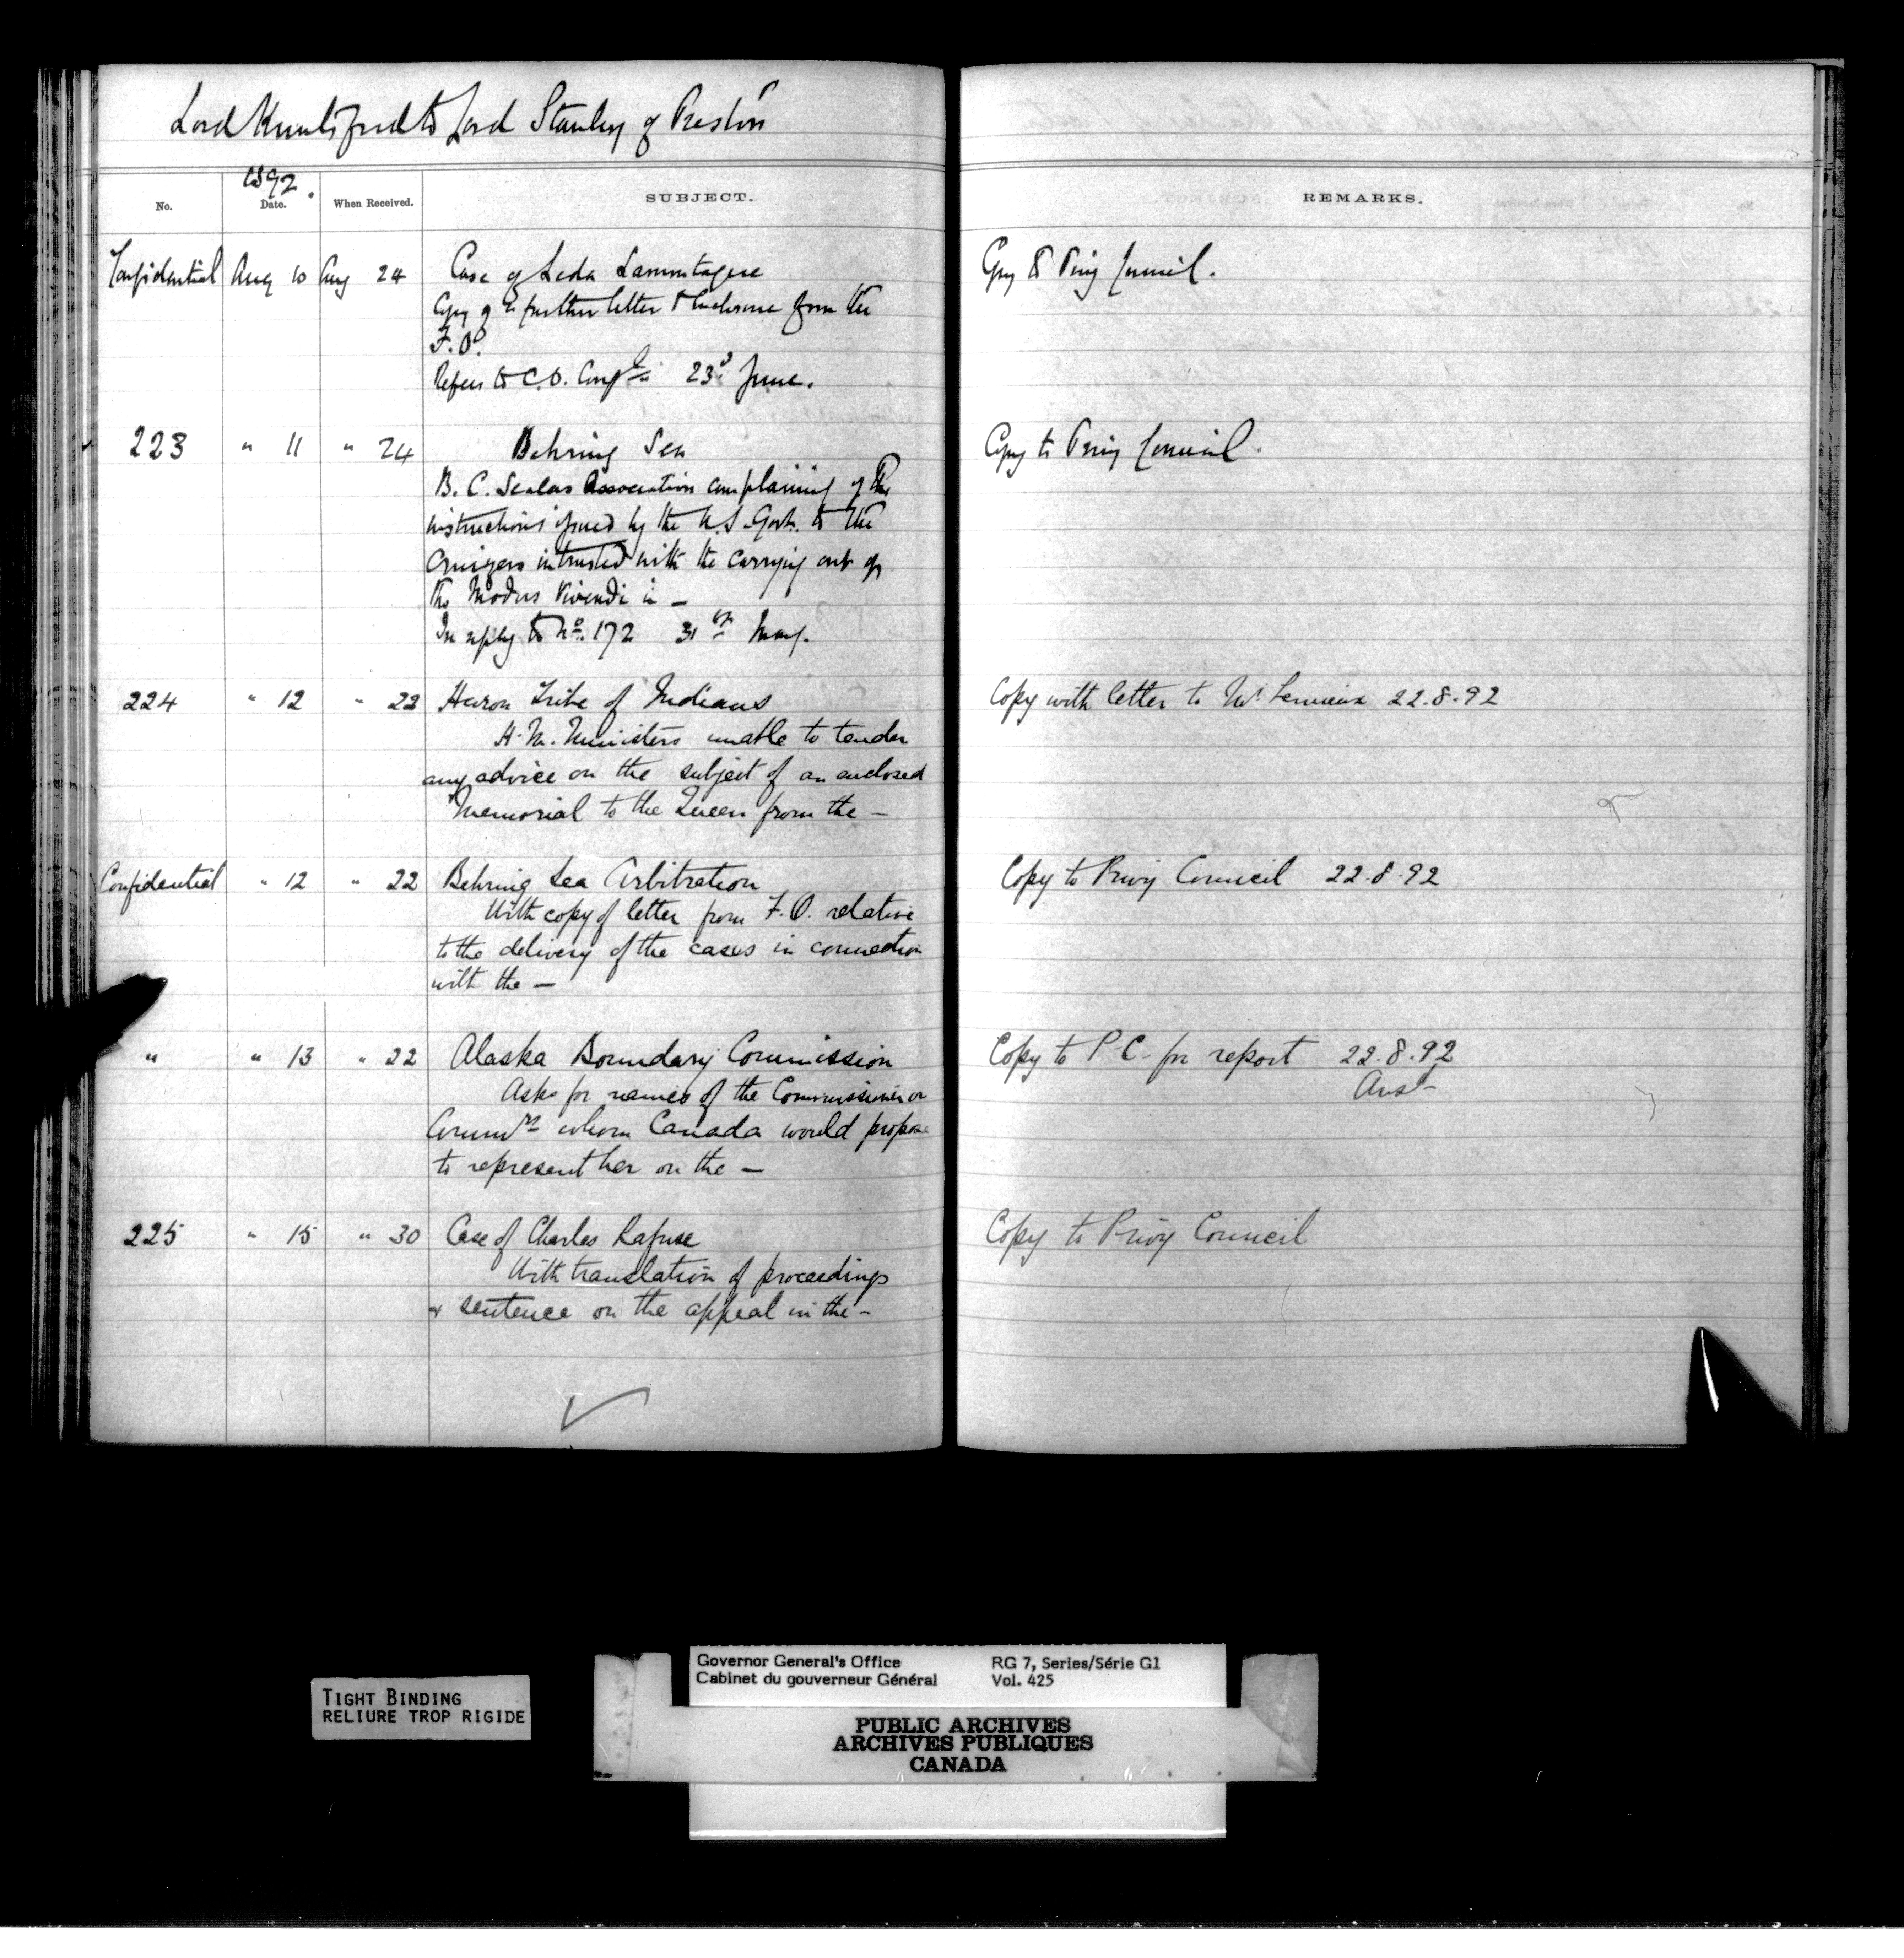 Lord Knutsford to Lord Stanley of Preston
1892.
No. Date. When Received. SUBJECT. REMARKS.
Confidential Aug 10 Aug 24 Case of Leda Lamontagne Copy to Privy Council.
Copy of a further letter & enclosure from the
F.O.
Refers to C.O. Confl. 23d June.
223 " 11 " 24 Behring Sea Copy to Privy Council.
B.C. Sealers Association complaining of the
instructions issued by the U.S. Govt. to the
Cruizers intrusted with the carrying out of
the Modus Vivendi in —
In reply to No. 172 31st May.
224 " 12 " 22 Huron Tribe of Indians Copy with letter to Mr. Lemieux 22.8.92
H.M. Ministers unable to tender
any advice on the subject of an enclosed
Memorial to the Queen from the —
Confidential " 12 " 22 Behring Sea Arbitration Copy to Privy Council 22.8.92
With copy of letter from F.O. relative
to the delivery of the cases in connection
with the —
" " 13 " 22 Alaska Boundary Commission Copy to P.C. for report 22.8.92
Asks for names of the Commissioner or Ansd
Commrs whom Canada would propose
to represent her on the —
225 " 15 " 30 Case of Charles Rafuse Copy to Privy Council
With translation of proceedings
& sentence on the appeal in the —
Governor General's Office RG 7, Series/Série G1
Cabinet du gouverneur Général Vol. 425
TIGHT BINDING
RELIURE TROP RIGIDE
PUBLIC ARCHIVES
ARCHIVES PUBLIQUES
CANADA